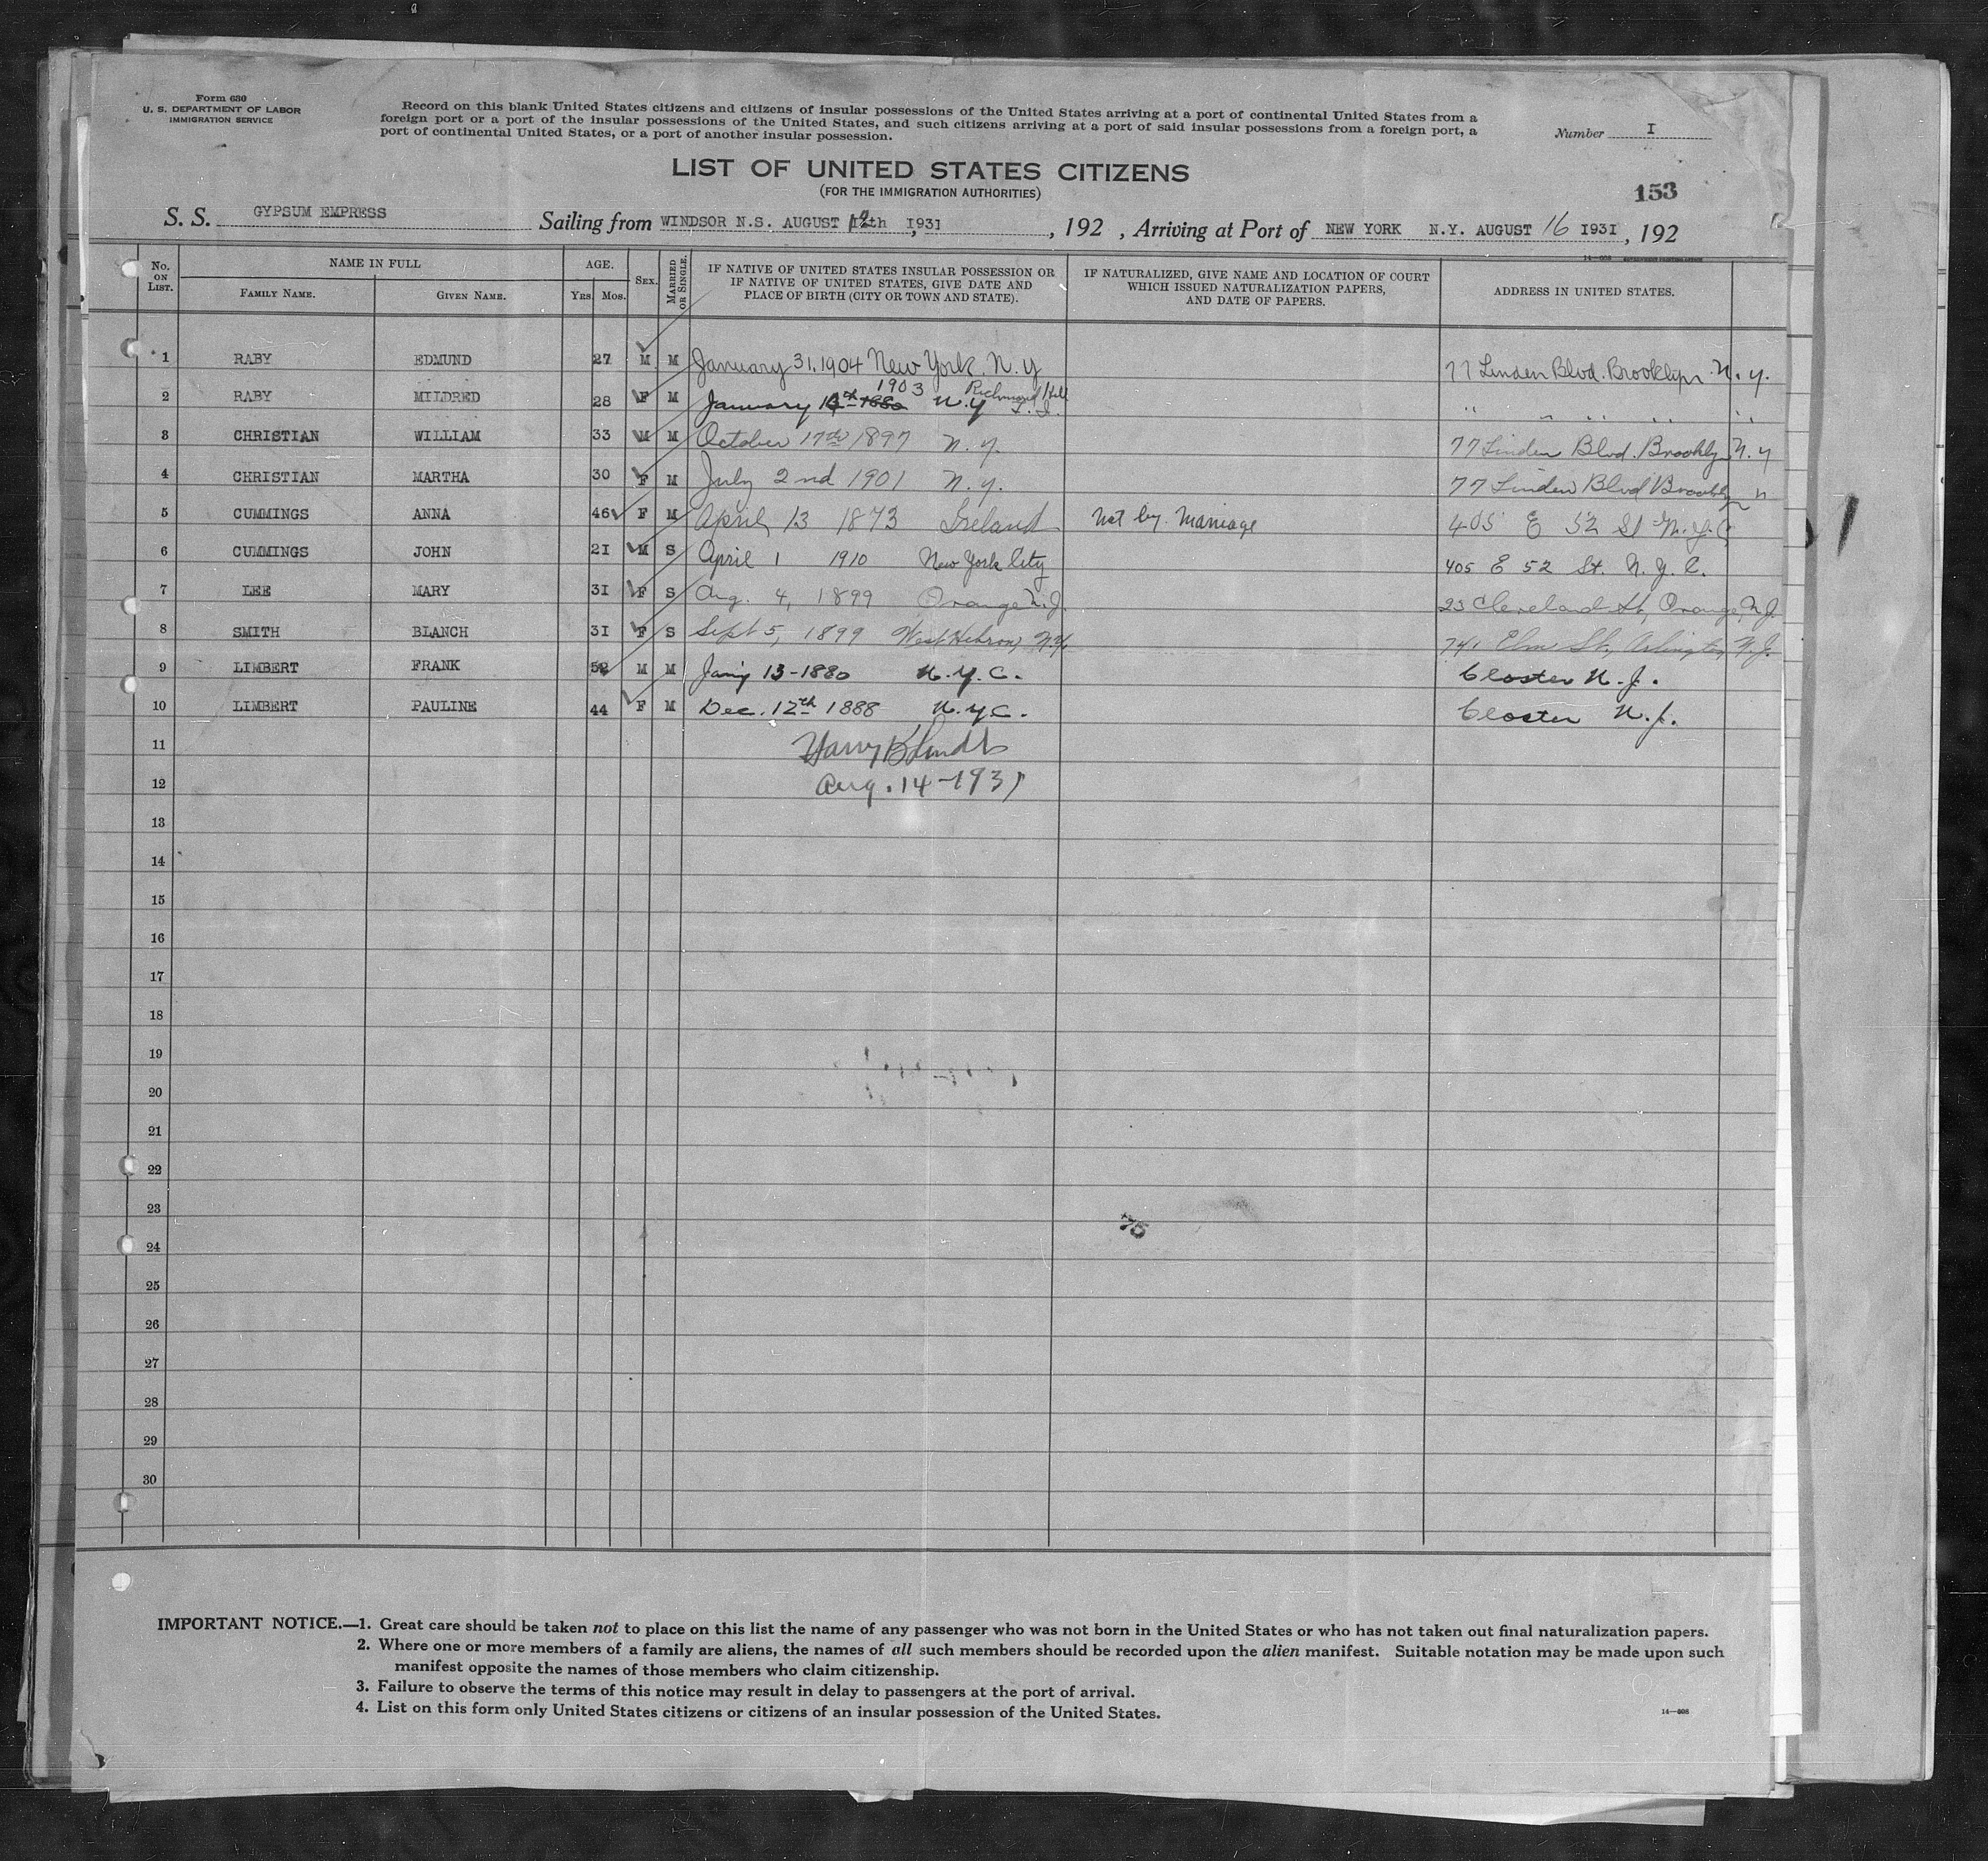 Form 630
U. S. DEPARTMENT OF LABOR
IMMIGRATION SERVICE
Record on this blank United States citizens and citizens of insular possessions of the United States arriving at a port of continental United States from a
foreign port or a port of the insular possessions of the United States, and such citizens arriving at a port of said insular possessions from a foreign port, a
port of continental United States, or a port of another insular possession.
Number I
LIST OF UNITED STATES CITIZENS
(FOR THE IMMIGRATION AUTHORITIES)
153
S. S. GYPSUM EMPRESS Sailing from WINDSOR N.S. AUGUST th, 1931, 192 , Arriving at Port of NEW YORK N.Y. AUGUST 16 1931, 192
No. ON LIST. NAME IN FULL FAMILY NAME. GIVEN NAME. AGE. YRS. MOS. SEX. MARRIED OR SINGLE. IF NATIVE OF UNITED STATES INSULAR POSSESSION OR IF NATIVE OF UNITED STATES, GIVE DATE AND PLACE OF BIRTH (CITY OR TOWN AND STATE). IF NATURALIZED, GIVE NAME AND LOCATION OF COURT WHICH ISSUED NATURALIZATION PAPERS, AND DATE OF PAPERS. ADDRESS IN UNITED STATES.
1 RABY EDMUND 27 M M January 31, 1904 New York. N.Y 77 Linden Blvd. Brooklyn N.Y.
2 RABY MILDRED 28 F M January 1903 N.Y Richmond Hill L.I. " " " " "
3 CHRISTIAN WILLIAM 33 M M October 17th 1897 N.Y. 77 Linden Blvd. Brooklyn N.Y
4 CHRISTIAN MARTHA 30 F M July 2nd 1901 N.Y. 77 Linden Blvd Brooklyn
5 CUMMINGS ANNA 46 F M April 13 1873 Ireland Nat by Marriage 405 E 52 St N.Y.C
6 CUMMINGS JOHN 21 M S April 1 1910 New York City 405 E 52 St. N.Y.C.
7 LEE MARY 31 F S Aug. 4, 1899 Orange N.J. 23 Cleveland St, Orange, N.J.
8 SMITH BLANCH 31 F S Sept 5, 1899 West Hebron, N.Y. 741 Elm St., Arlington N.J.
9 LIMBERT FRANK M M 13-1880 N.Y.C. Closter N.J.
10 LIMBERT PAULINE 44 F M Dec. 12th 1888 N.Y.C. Closter N.J.
11 Harry
12 Aug. 14-1931
13
14
15
16
17
18
19
20
21
22
23
24
25
26
27
28
29
30
IMPORTANT NOTICE.—1. Great care should be taken not to place on this list the name of any passenger who was not born in the United States or who has not taken out final naturalization papers.
2. Where one or more members of a family are aliens, the names of all such members should be recorded upon the alien manifest. Suitable notation may be made upon such
manifest opposite the names of those members who claim citizenship.
3. Failure to observe the terms of this notice may result in delay to passengers at the port of arrival.
4. List on this form only United States citizens or citizens of an insular possession of the United States.